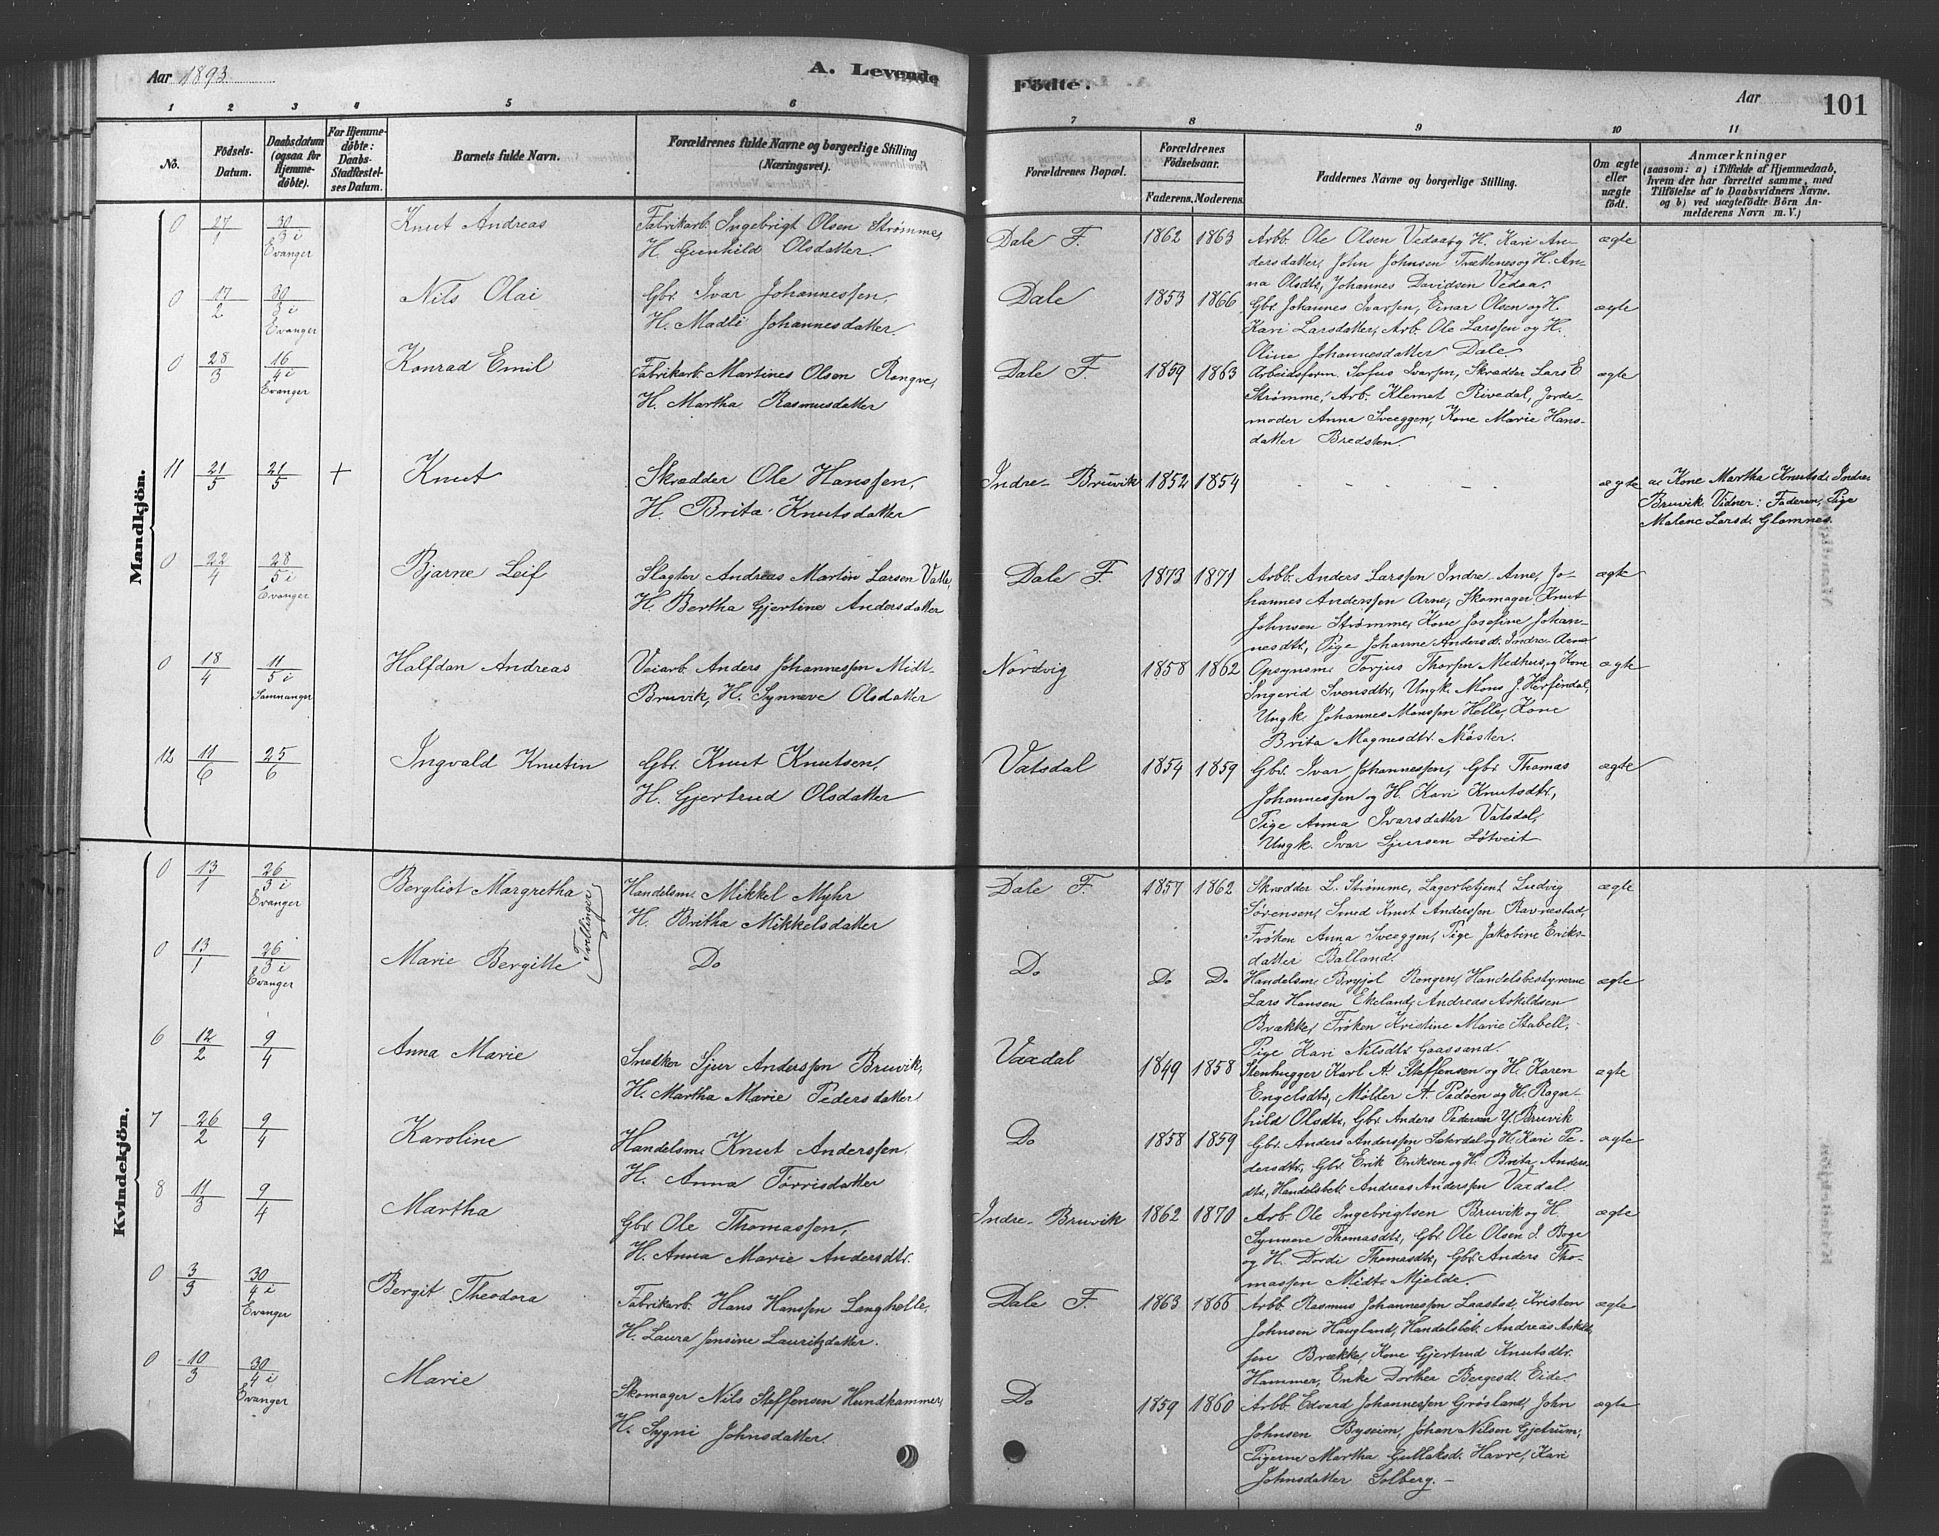 Aar 1893. A. Levende Fødte. Aar 101
1 2 3 4 5 6 7 8 9 10 11
No. Fødsels-Datum. Daabsdatum (ogsaa for Hjemmedøbte). For Hjemmedøbte: Daabs-Stadfæstelses Datum. Barnets fulde Navn. Forældrenes fulde Navne og borgerlige Stilling (Næringsvei). Forældrenes Bopæl. Forældrenes Fødselsaar. Faderens. Moderens. Faddernes Navne og borgerlige Stilling. Om ægte eller uægte født. Anmærkninger (saasom: a) i Tilfælde af Hjemmedaab, hvem der har forrettet samme, med Tilføielse af to Daabsvidners Navne, og b) ved uægtefødte Børn Anmelderens Navn m. V.)
Mandkjön.
0 27/1 30/3 i Evanger Knut Andreas Fabrikarb. Ingebrigt Olsen Strømme, Dale F. 1862 1863 Arbb. Ole Olsen Vedaa og H. Kari An- ægte
H. Gunhild Olsdatter. dersdatter, John Johnsen Trættenes og H. An-
na Olsdtr, Johannes Davidsen Vedaa.
0 17/2 30/3 i Evanger Nils Olai Gbr. Ivar Johannessen, Dale 1853 1866 Gbr. Johannes Ivarsen, Einar Olsen og H. ægte
H. Madli Johannesdatter. Kari Larsdatter, Arb. Ole Larssen og H.
Oline Johannesdatter Dale
0 28/3 16/4 i Evanger Konrad Emil Fabrikarb. Martines Olsen Rongve, Dale F. 1859 1863 Arbeidsform. Sofus Ivarsen, Skrædder Lars E ægte
H. Martha Rasmusdatter Strømme, Arb. Klemet Rivedal, Jorde-
moder Anna Sveeggen, Kone Marie Hans-
datter Bredsten
11 21/5 21/5 + Knut Skrædder Ole Hanssen, Indre-Bruvik 1852 1854 - - - - ægte a. Kone Martha Knutsd. Indre
H. Brita Knutsdatter Bruvik. Vidner: Faderen, Pige
Malene Larsd. Glamnes.
0 22/4 28/5 i Evanger Bjarne Leif Slagter Andreas Martin Larsen Valle, Dale F. 1873 1871 Arbb. Anders Larssen Indre-Arne, Jo- ægte
H. Bertha Gjertine Andersdatter hannes Anderssen Arne, Skomager Knut
Johnsen Strømme, Kone Josefine Johan-
nesdtr, Pige Johanne Andersd. Indre-Arna
0 18/4 11/5 i Samnanger Halfdan Andreas Veiarb. Anders Johannessen Midt- Nordvig 1858 1862 Opsynsm. Torjus Thorsen Medhus, og Kone ægte
Bruvik, H. Synneve Olsdatter Ingerid Svensdtr, Ungk. Mons J. Herfindal,
Ungk. Johannes Monssen Helle, Kone
Brita Magnesdtr. Møster.
12 11/6 25/6 Ingvald Knutin Gbr. Knut Knutsen, Vatsdal 1854 1859 Gbr. Ivar Johannessen, Gbr. Thomas ægte
H. Gjertrud Olsdatter Johannessen og H. Kari Knutsdtr,
Pige Anna Ivarsdatter Vatsdal,
Ungk. Ivar Sjursen Løtveit
Kvindekjön.
0 13/1 26/3 i Evanger Bergliot Margretha Tvillinger Handelsm. Mikkel Myhr Dale F. 1857 1862 Skrædder L. Strømme, Lagerbetjent Ludvig ægte
H. Britha Mikkelsdatter Sørensen, Smed Knut Anderssen Ravnestad,
Frøken Anna Sveeggen, Pige Jakobine Eriks-
datter Balland.
0 13/1 26/3 i Evanger Marie Bergitte Do Do Do Do Handelsm. Brynjel Rongen, Handelsbestyrerne ægte
Lars Hansen Ekeland, Andreas Askildsen
Brække, Frøken Kristine Marie Stabell,
Pige Kari Nilsdtr Gaassand.
6 12/2 9/4 Anna Marie Snedker Sjur Anderssen Bruvik, Vaxdal 1849 1858 Stenhugger Karl A. Steffensen og H. Karen ægte
H. Martha Marie Pedersdatter Engelsdtr, Møller A. Padøen og H. Ragn-
hild Olsdtr, Gbr. Anders Pedersen Y. Bruvik
7 26/2 9/4 Karoline Handelsm. Knut Anderssen, Do 1858 1859 Gbr. Anders Anderssen og H. Kari Pe- ægte
H. Anna Torrisdatter dersdtr, Gbr. Erik Eriksen og H. Brita Anders-
dtr, Handelsbet. Andreas Anderssen Vaxdal
8 11/3 9/4 Martha Gbr Ole Thomassen, Indre-Bruvik 1862 1870 Arb. Ole Ingebrigtsen Bruvik og H. ægte
H. Anna Marie Andersdtr. Synneve Thomasdtr, Gbr. Ole Olsen I. Boge
og H. Dordi Thomasdtr, Gbr. Anders Tho-
massen Midt-Mjelde.
0 3/3 30/4 i Evanger Bergit Theodora Fabrikarb. Hans Hanssen Langhelle, Dale F. 1863 1866 Arbb. Rasmus Johannessen Laastad, Kristen ægte
H. Laura Jensine Lauritzdatter. Johnsen Haugland, Handelsbet. Andreas Askild-
sen Brække, Kone Gjertrud Knutsdtr.
Hammer, Enke Dorthea Bergesd. Eide
0 10/3 30/4 i Evanger Marie Skomager Nils Steffensen Hundhammer, Do 1859 1860 Arbb. Edvard Johannessen Grøsland, John ægte
H. Sygni Johnsdatter. Johnsen Byseim, Johan Nilsen Gjetrum,
Pigerne Martha Gullaksd. Havre, Kari
Johnsdatter Solberg.-